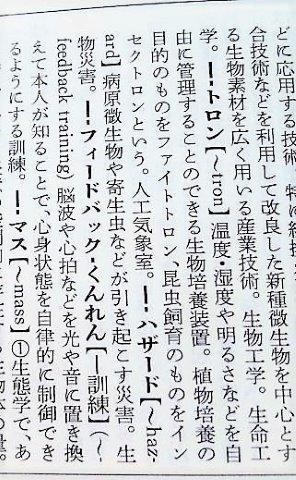 どに応用する技術。特に組換え
合技術などを利用して改良した新種微生物を中心とす
る生物素材を広く用いる産業技術。生物工学。生命工
学。━トロン【～tron】温度・湿度や明るさなどを自
由に管理することのできる生物培養装置。植物培養の
目的のものをファイトトロン、昆虫飼育のものをイン
セクトロンという。人工気象室。━ハザード【～haz-
ard】病原微生物や寄生虫などが引き起こす災害。生
物災害。━フィードバック‐くんれん【━訓練】（～
feedback training）脳波や心拍などを光や音に置き換
えて本人が知ることで、心身状態を自律的に制御でき
るようにする訓練。━マス【～mass】①生態学で、あ